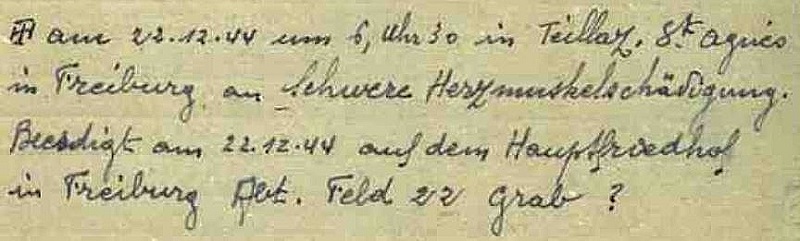 ✝ am 22.12.44 um 6, Uhr 30 in Teillaz. St. Agnes
in Freiburg an Schwere Herzmuskelschädigung.
Beerdigt am 22.12.44 auf dem Hauptfriedhof
in Freiburg Abt. Feld 22 Grab ?